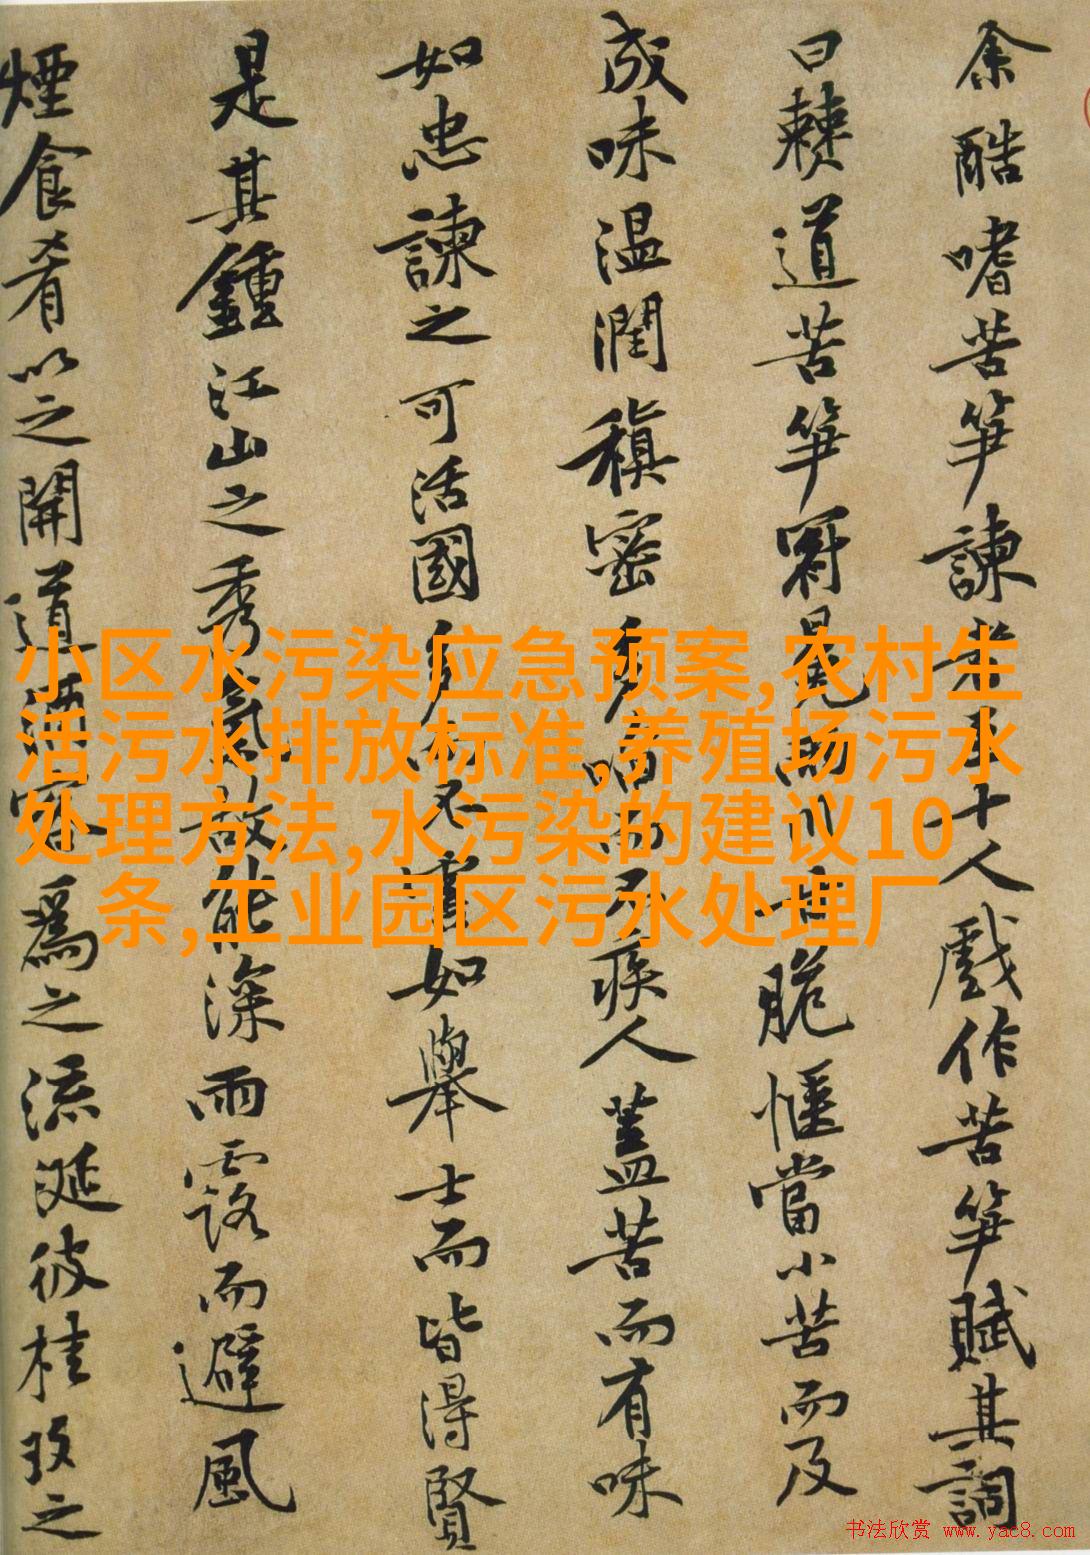 余酷嗜苦笋諫者至十人戲作苦笋賦其詞
曰僰道苦笋冠冕兩川甘脆愜當小苦而及
成味温潤稹密多啗而不疾人蓋苦而有味
如忠諫之可活國多而不害如舉士而皆得賢
是其鍾江山之秀氣故能深雨露而避風
煙食肴以之開道酒客為之流涎彼桂玫之
小区水污染应急预案,农村生
活污水排放标准,养殖场污水
处理方法,水污染的建议10
条,工业园区污水处理厂
书法欣赏 www.yac8.com